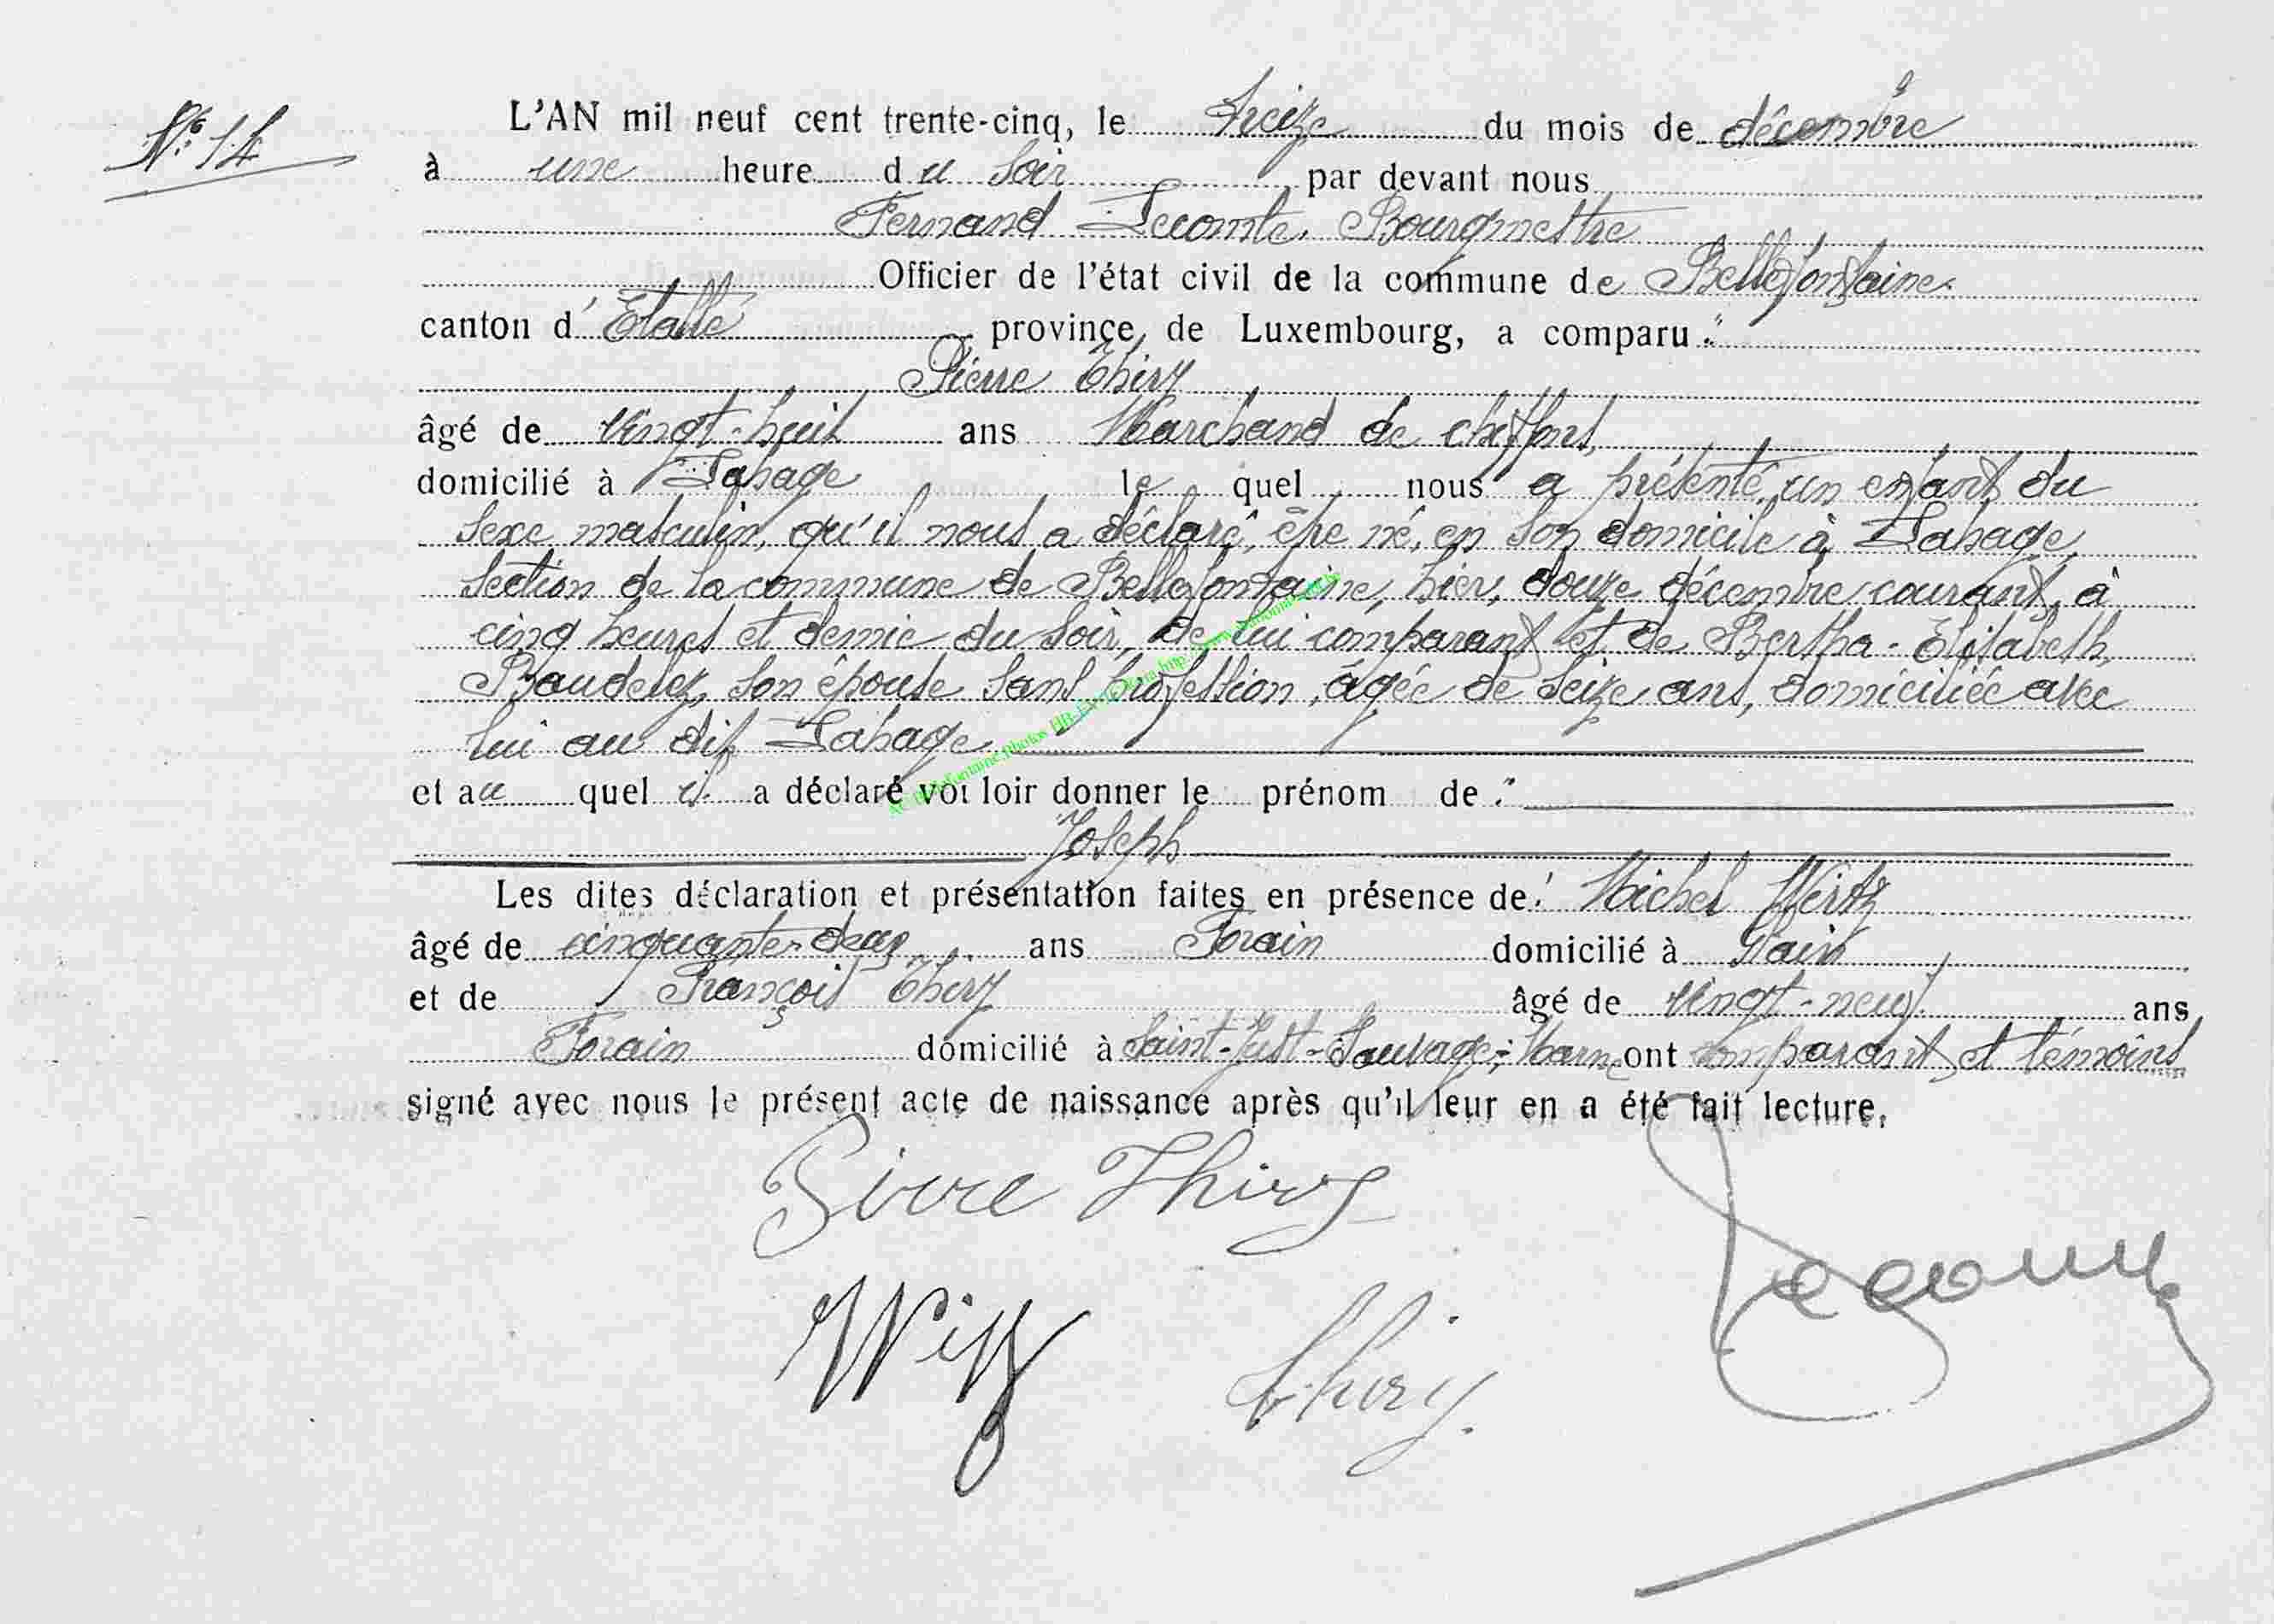 N° 14
L'AN mil neuf cent trente-cinq, le treize du mois de décembre
à une heure du soir par devant nous
Fernand Lecomte, Bourgmestre
Officier de l'état civil de la commune de Bellefontaine
canton d'Etalle province de Luxembourg, a comparu :
Pierre Thiry
âgé de vingt-huit ans Marchand de chiffons,
domicilié à Lahage le quel nous a présenté un enfant du
sexe masculin, qu'il nous a déclaré, être né, en son domicile à Lahage,
section de la commune de Bellefontaine, hier, douze décembre courant, à
cinq heures et demie du soir, de lui comparant et de Bertha-Elisabeth
Baudelez, son épouse sans profession, âgée de seize ans, domiciliée avec
lui au dit Lahage
et au quel il a déclaré vouloir donner le prénom de :
Joseph
Les dites déclaration et présentation faites en présence de : Michel
âgé de cinquante-deux ans Forain domicilié à
et de François Thiry âgé de vingt-neuf ans
Forain domicilié à Saint-Just-Sauvage, Marne ont comparant et témoins
signé avec nous le présent acte de naissance après qu'il leur en a été fait lecture.
Pierre Thiry
Thiry.